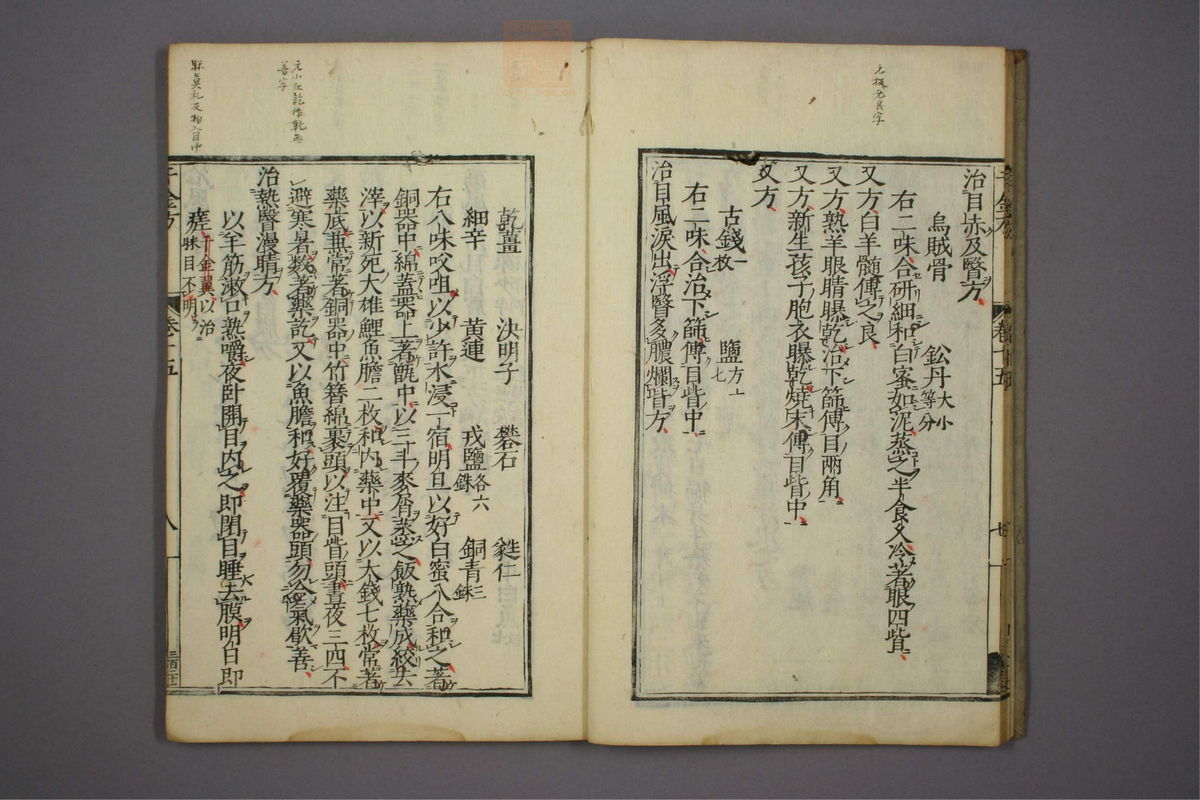 治目赤及瞖方
烏賊骨 鈆丹大小等分
右二味合研細和白蜜如泥蒸之半食久冷著眼四眥
又方白羊髓傅之良
又方熟羊眼睛曝乾治下篩傅目兩角
又方新生孩子胞衣曝乾燒末傅目眥中
又方
古錢一枚 鹽方寸七
右二味合治下篩傅目眥中
治目風淚出浮瞖多膿爛眥方
乾薑 決明子 礬石 蕤仁
細辛 黃連 戎鹽各六銖 銅青三銖
右八味㕮咀以少許水浸一宿明旦以好白蜜八合和之著
銅器中綿蓋器上著甑中以三斗麥屑蒸之飯熟藥成絞去
滓以新死大雄鯉魚膽二枚和內藥中又以大錢七枚常著
藥底兼常著銅器中竹簪綿裹頭以注目眥頭晝夜三四不
避寒暑數著藥訖又以魚膽和好覆藥器頭勿令氣歇善
治熱瞖漫睛方
以羊筋漱口熟嚼夜臥開目內之即閉目睡去膜明日即
瘥千金翼以治眯目不明
卷十五